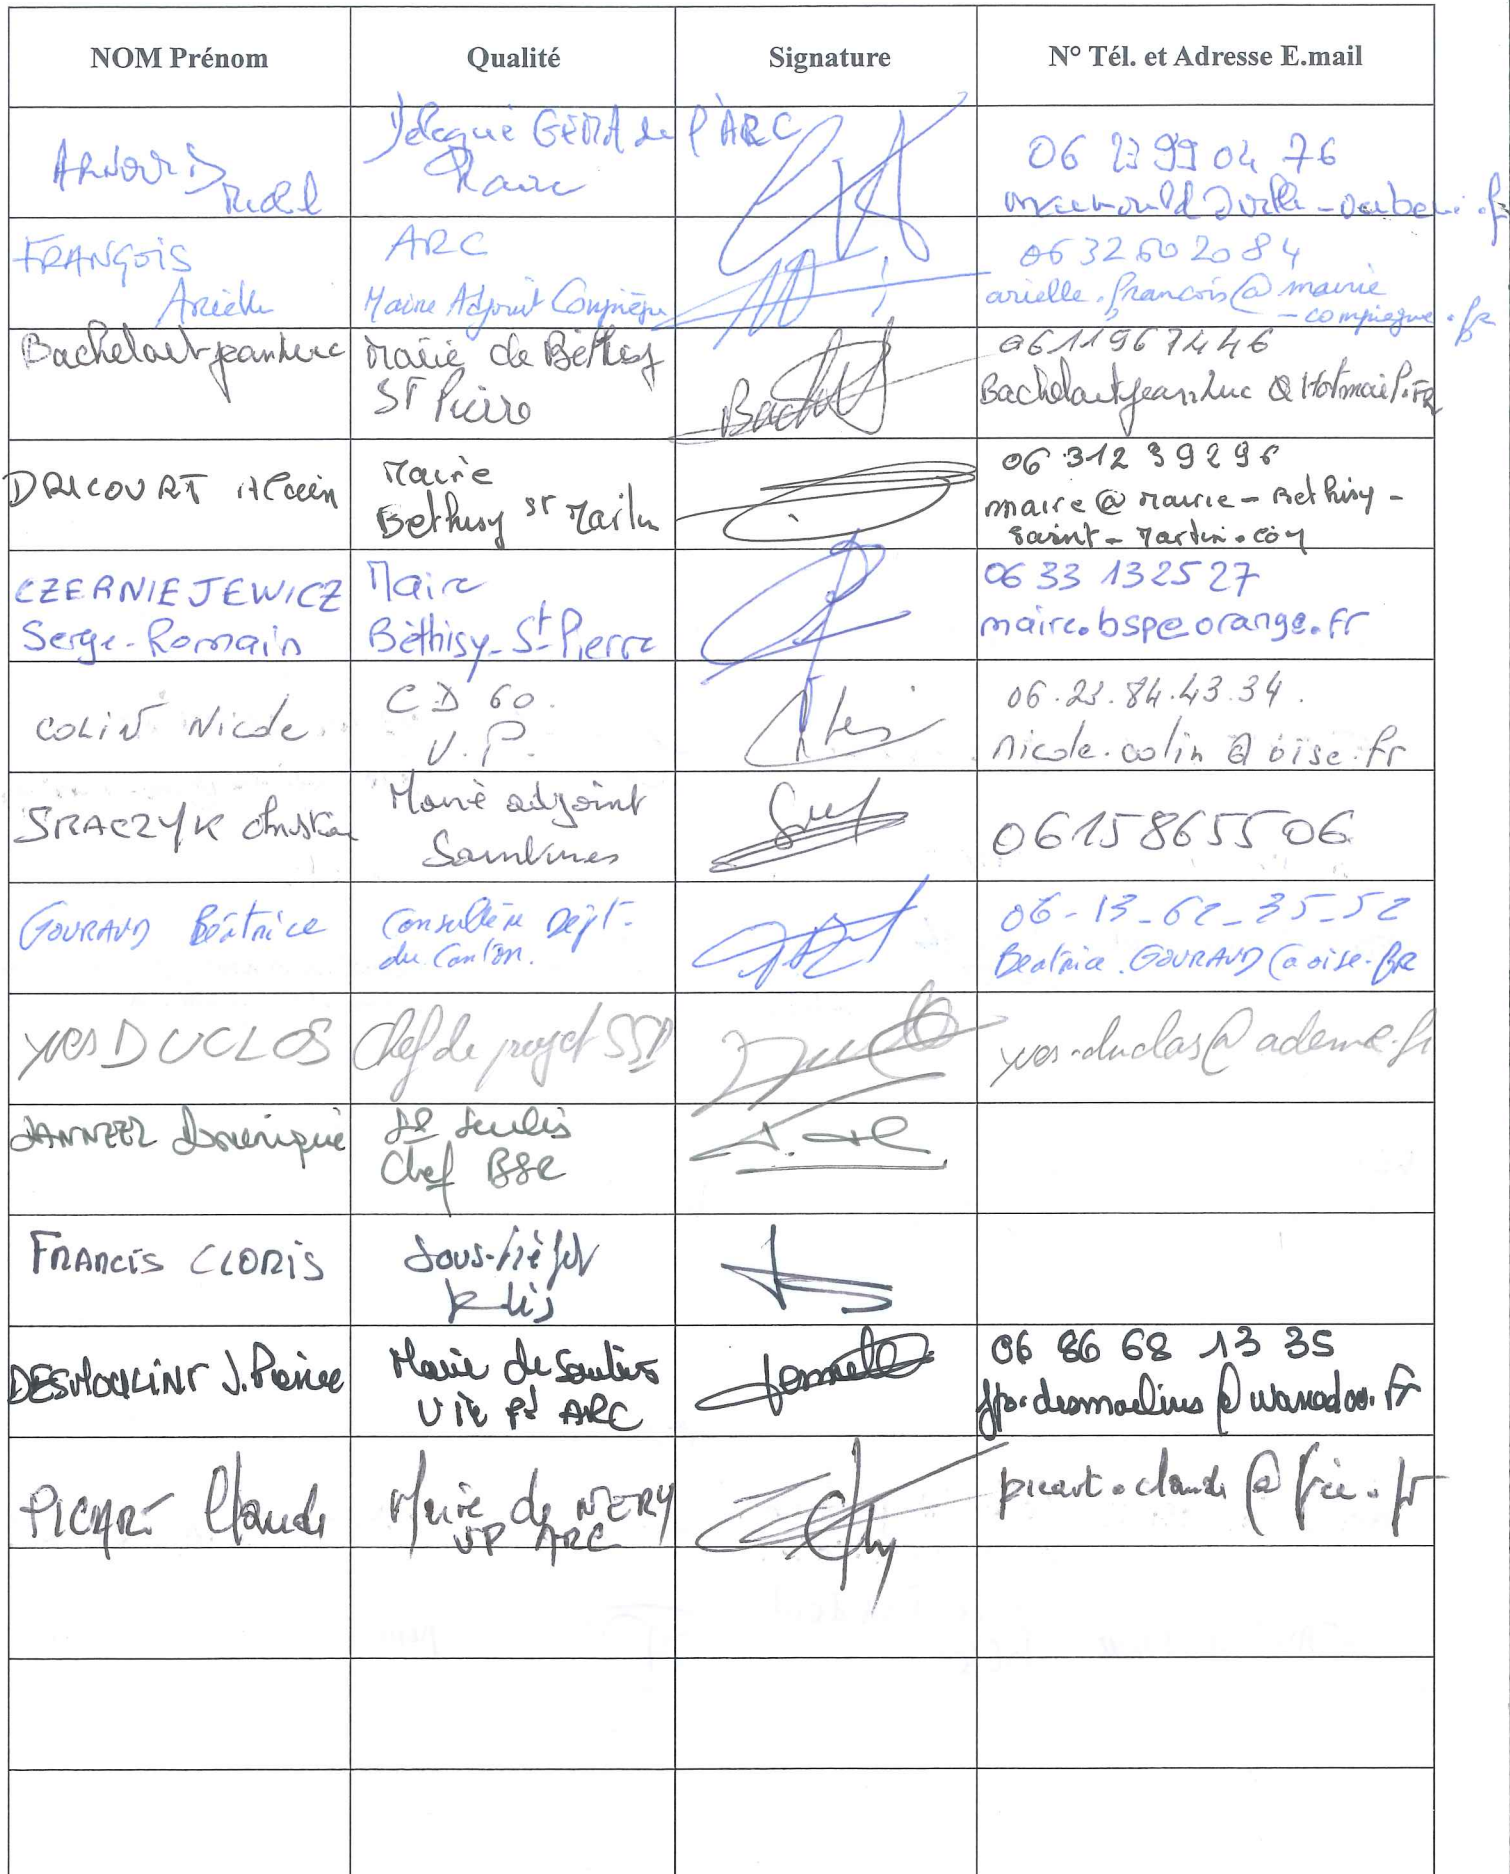 NOM Prénom
Qualité
Signature
N° Tél. et Adresse E.mail
ARNOULD
délégué GEMA de l'ARC
Maire
06 23 99 04 76
FRANÇOIS
Arielle
ARC
Maire Adjoint Compiègne
06 32 60 20 84
arielle.francois@mairie
-compiegne.fr
Bachelart jeanluc
Mairie de Béthisy
ST Pierre
0611967446
Bachelartjeanluc @ Hotmail.FR
DRICOURT Alain
Maire
Bethisy St Martin
06 312 39296
maire@mairie-Bethisy-
saint-martin.com
CZERNIEJEWICZ
Serge-Romain
Maire
Béthisy-St Pierre
06 33 132527
maire.bsp@orange.fr
COLIN Nicole
CD 60.
V.P.
06.23.84.43.34.
nicole.colin @ oise.fr
SRACZYK
Maire adjoint
Saintines
0615865506
GOURAUD Béatrice
Conseillère Dépt.
du Canton.
06-13-62-35-52
Beatrice.GOURAUD@oise.fr
yves DUCLOS
Chef de projet SSP
yves.duclos@ademe.fr
Dominique
Senlis
Chef
FRANCIS CLORIS
Sous-Préfet
J. Pierre
Maire de Saintines
ARC
06 86 68 13 35
@wanadoo.fr
PICART Claude
Maire de NERY
VP ARC
picart.claude@free.fr